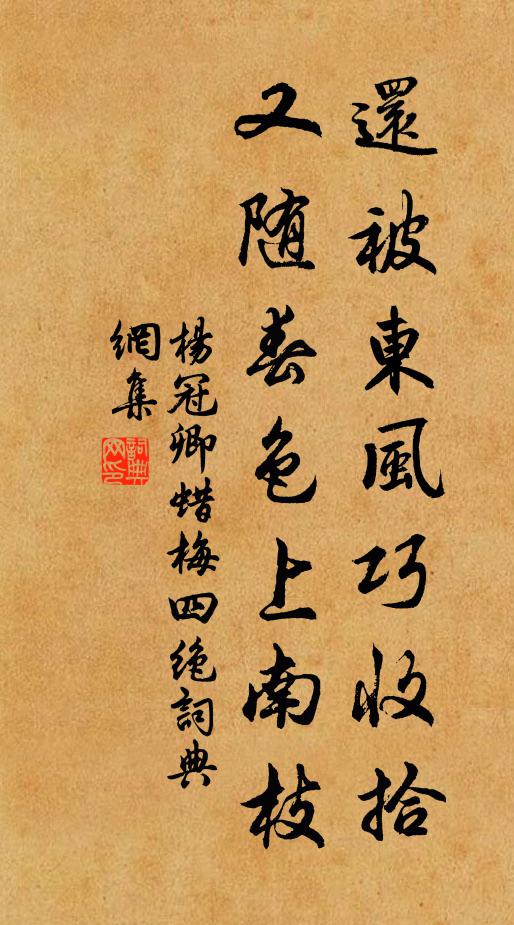 還被東風巧收拾
又随春色上南枝
楊冠卿蜡梅四绝詞典
網集
詞典網印